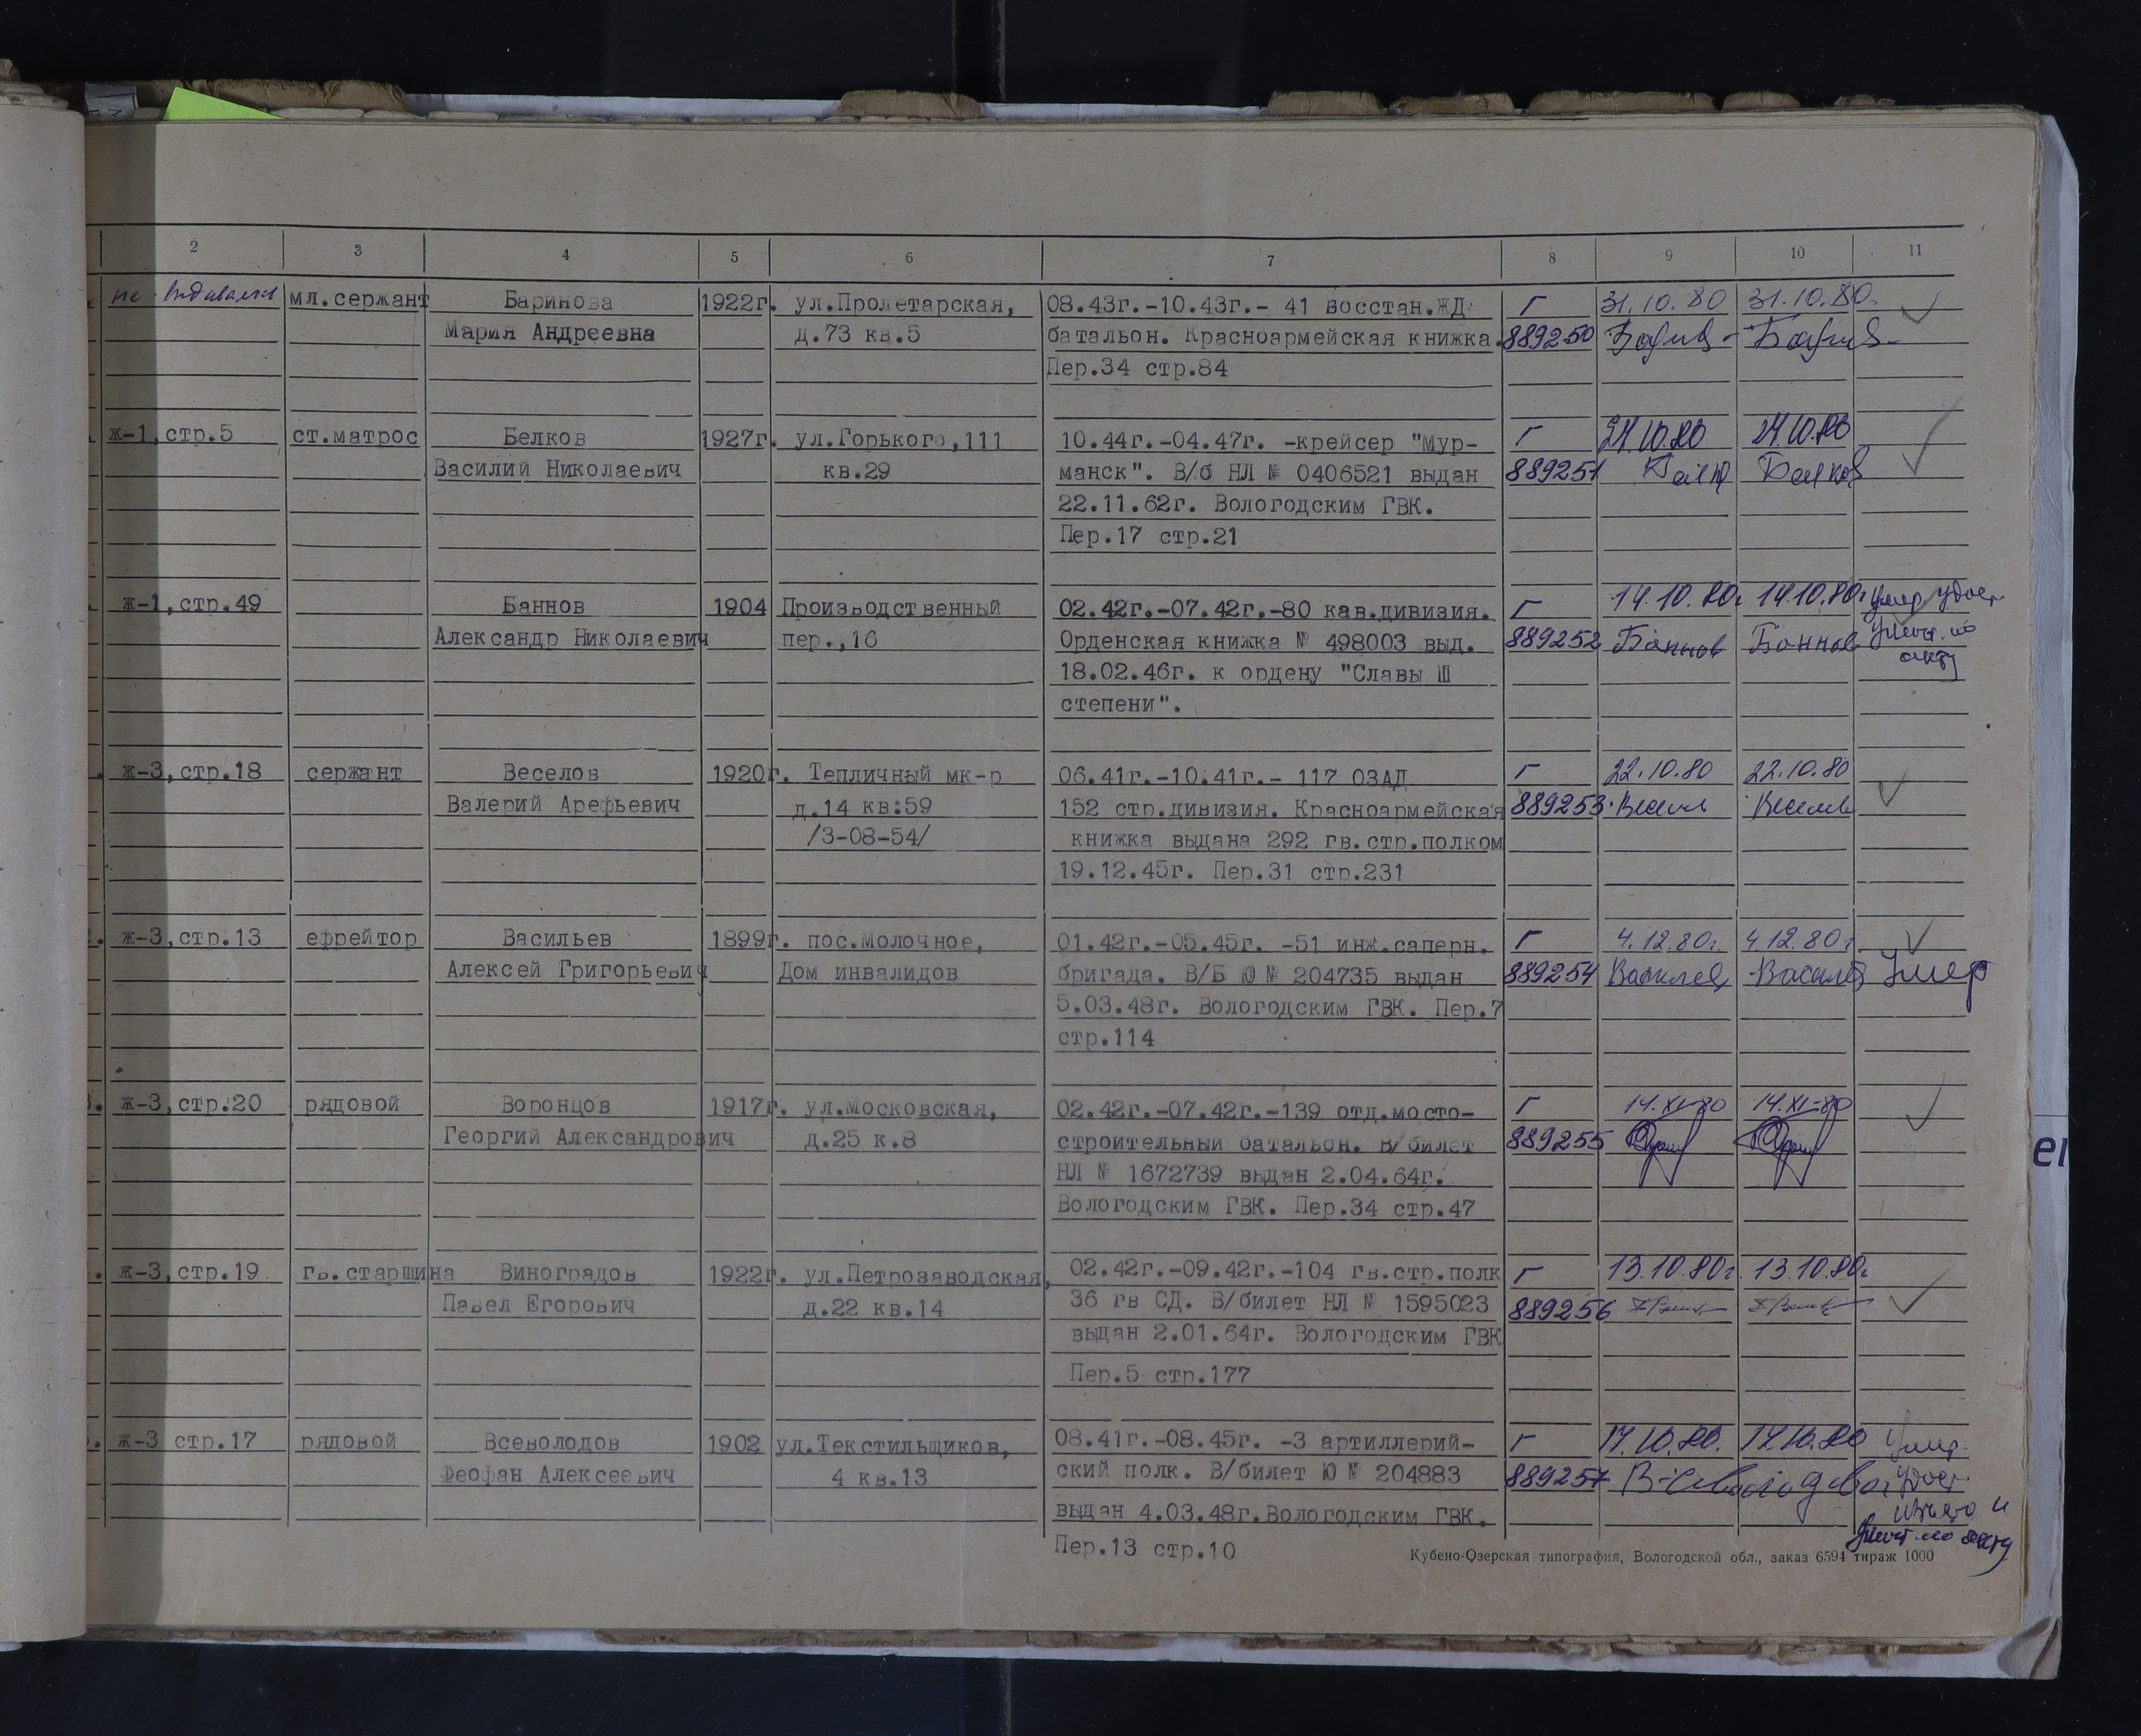 2 3 4 5 6 7 8 9 10 11
не выдавалось мл.сержант Баринова 1922г. ул.Пролетарская, 08.43г.-10.43г.- 41 восстан.ЖД Г 31.10.80 31.10.80.
Мария Андреевна д.73 кв.5 батальон. Красноармейская книжка. 889250
Пер.34 стр.84
ж-1,стр.5 ст.матрос Белков 1927г. ул.Горького,111 10.44г.-04.47г. -крейсер "Мур- Г 24.10.80 24.10.80
Василий Николаевич кв.29 манск". В/б НЛ № 0406521 выдан 889251 Белков
22.11.62г. Вологодским ГВК.
Пер.17 стр.21
ж-1,стр.49 Баннов 1904 Производственный 02.42г.-07.42г.-80 кав.дивизия. Г 14.10.80г 14.10.80г умер удост.
Александр Николаевич пер.,16 Орденская книжка № 498003 выд. 889252 Баннов Баннов уничт. по
18.02.46г. к ордену "Славы Ш акту
степени".
ж-3,стр.18 сержант Веселов 1920г. Тепличный мк-р 06.41г.-10.41г.- 117 ОЗАД Г 22.10.80 22.10.80
Валерий Арефьевич д.14 кв:59 152 стр.дивизия. Красноармейская 889253
/3-08-54/ книжка выдана 292 гв.стр.полком
19.12.45г. Пер.31 стр.231
ж-3,стр.13 ефрейтор Васильев 1899г. пос.Молочное, 01.42г.-05.45г. -51 инж.саперн. Г 4.12.80г. 4.12.80г
Алексей Григорьевич Дом инвалидов бригада. В/Б Ю № 204735 выдан 889254 Умер
5.03.48г. Вологодским ГВК. Пер.7
стр.114
ж-3,стр.20 рядовой Воронцов 1917г. ул.Московская, 02.42г.-07.42г.-139 отд.мосто- Г 14.XI-80 14.XI-80
Георгий Александрович д.25 к.8 строительный батальон. В/билет 889255
НЛ № 1672739 выдан 2.04.64г.
Вологодским ГВК. Пер.34 стр.47
ж-3,стр.19 гв.старшина Виноградов 1922г. ул.Петрозаводская, 02.42г.-09.42г.-104 гв.стр.полк Г 13.10.80г 13.10.80г
Павел Егорович д.22 кв.14 36 гв СД. В/билет НЛ № 1595023 889256
выдан 2.01.64г. Вологодским ГВК
Пер.5 стр.177
ж-3 стр.17 рядовой Всеволодов 1902 ул.Текстильщиков, 08.41г.-08.45г. -3 артиллерий- Г 17.10.80. 17.10.80 Умер.
Феофан Алексеевич 4 кв.13 ский полк. В/билет Ю № 204883 889257 удост.
выдан 4.03.48г.Вологодским ГВК. изъято и
Пер.13 стр.10 уничт. по акту
Кубено-Озерская типография, Вологодской обл., заказ 6594 тираж 1000